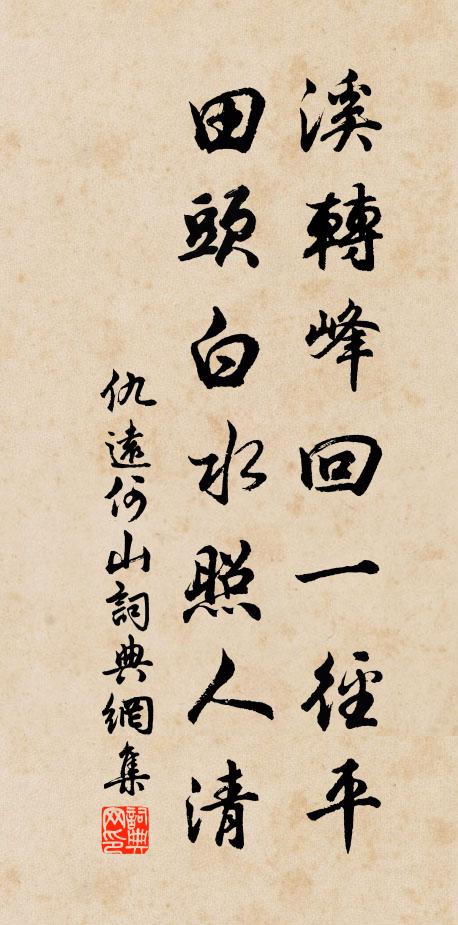 溪轉峰回一徑平
田頭白水照人清
仇遠何山詞典網集
詞典网印